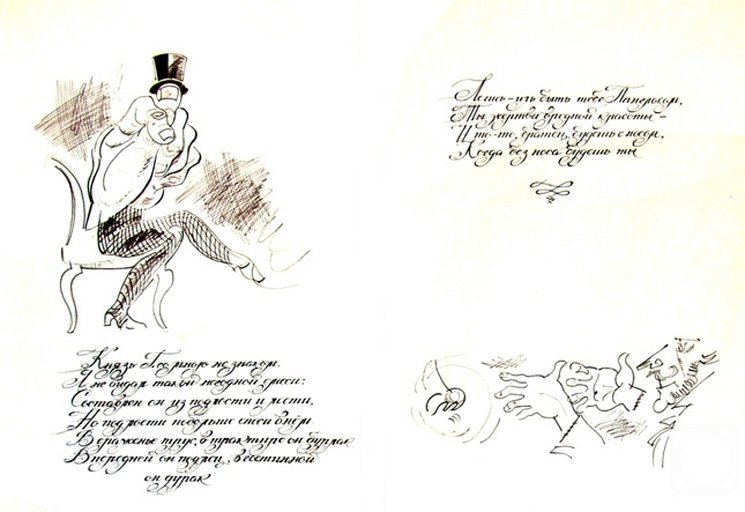 Князь Г. со мною не знаком.
Я не видал такой негодной смеси:
Составлен он из подлости и спеси,
Но подлости побольше спеси в нём.
В сраженье трус, в трактире он бурлак
В передней он подлец, в гостинной
он дурак
Лечись – иль быть тебе Панглосом,
Ты жертва вредной красоты –
И то-то, братец, будешь с носом,
Когда без носа будешь ты